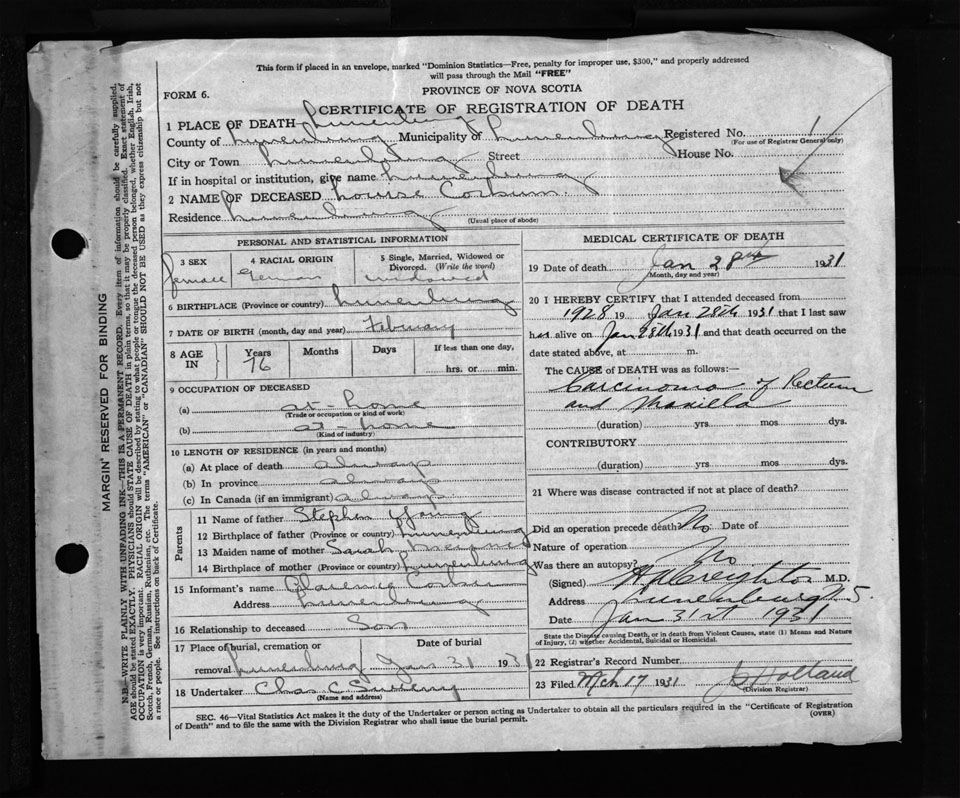 This form if placed in an envelope, marked "Dominion Statistics—Free, penalty for improper use, $300," and properly addressed
will pass through the Mail "FREE"
PROVINCE OF NOVA SCOTIA
FORM 6.
CERTIFICATE OF REGISTRATION OF DEATH
1 PLACE OF DEATH Lunenburg
County of Lunenburg Municipality of Lunenburg Registered No. 1
(For use of Registrar General only)
City or Town Lunenburg Street House No.
If in hospital or institution, give name Lunenburg
2 NAME OF DECEASED Louise Corkum
Residence Lunenburg
(Usual place of abode)
PERSONAL AND STATISTICAL INFORMATION
3 SEX 4 RACIAL ORIGIN 5 Single, Married, Widowed or
Divorced. (Write the word)
female German widowed
6 BIRTHPLACE (Province or country) Lunenburg
7 DATE OF BIRTH (month, day and year) February
8 AGE IN Years Months Days If less than one day,
76 hrs. or min.
9 OCCUPATION OF DECEASED
(a) at-home
(Trade or occupation or kind of work)
(b) at-home
(Kind of industry)
10 LENGTH OF RESIDENCE (in years and months)
(a) At place of death always
(b) In province always
(c) In Canada (if an immigrant) always
Parents
11 Name of father Stephen Young
12 Birthplace of father (Province or country) Lunenburg
13 Maiden name of mother Sarah
14 Birthplace of mother (Province or country) Lunenburg
15 Informant's name Clarence Corkum
Address Lunenburg
16 Relationship to deceased Son
17 Place of burial, cremation or Date of burial
removal Lunenburg Jan 31 1931
18 Undertaker Chas C
(Name and address)
MEDICAL CERTIFICATE OF DEATH
19 Date of death Jan 28th 1931
(Month, day and year)
20 I HEREBY CERTIFY that I attended deceased from
1928 19 Jan 28th 1931 that I last saw
her alive on Jan 28th 1931 and that death occurred on the
date stated above, at m.
The CAUSE of DEATH was as follows:
Carcinoma of Rectum
and Maxilla
(duration) yrs. mos. dys.
CONTRIBUTORY
(duration) yrs. mos. dys.
21 Where was disease contracted if not at place of death?
Did an operation precede death? No Date of
Nature of operation
Was there an autopsy? No
(Signed) H A Creighton M.D.
Address Lunenburg N.S.
Date Jan 31st 1931
State the Disease causing Death, or in death from Violent Causes, state (1) Means and Nature
of Injury, (2) whether Accidental, Suicidal or Homicidal.
22 Registrar's Record Number
23 Filed Mch 17 1931 Holland
(Division Registrar)
SEC. 46—Vital Statistics Act makes it the duty of the Undertaker or person acting as Undertaker to obtain all the particulars required in the "Certificate of Registration
of Death" and to file the same with the Division Registrar who shall issue the burial permit. (OVER)
MARGIN RESERVED FOR BINDING
N.B.—WRITE PLAINLY WITH UNFADING INK—THIS IS A PERMANENT RECORD. Every item of information should be carefully supplied.
AGE should be stated EXACTLY. PHYSICIANS should STATE CAUSE OF DEATH in plain terms, so that it may be properly classified. Exact statement of
OCCUPATION is very important. RACIAL ORIGIN will be described by stating to what people or tongue the deceased person belonged, whether English, Irish,
Scotch, French, German, Russian, Ruthenian, etc. The terms "AMERICAN" or "CANADIAN" SHOULD NOT BE USED as they express citizenship but not
a race or people. See instructions on back of Certificate.